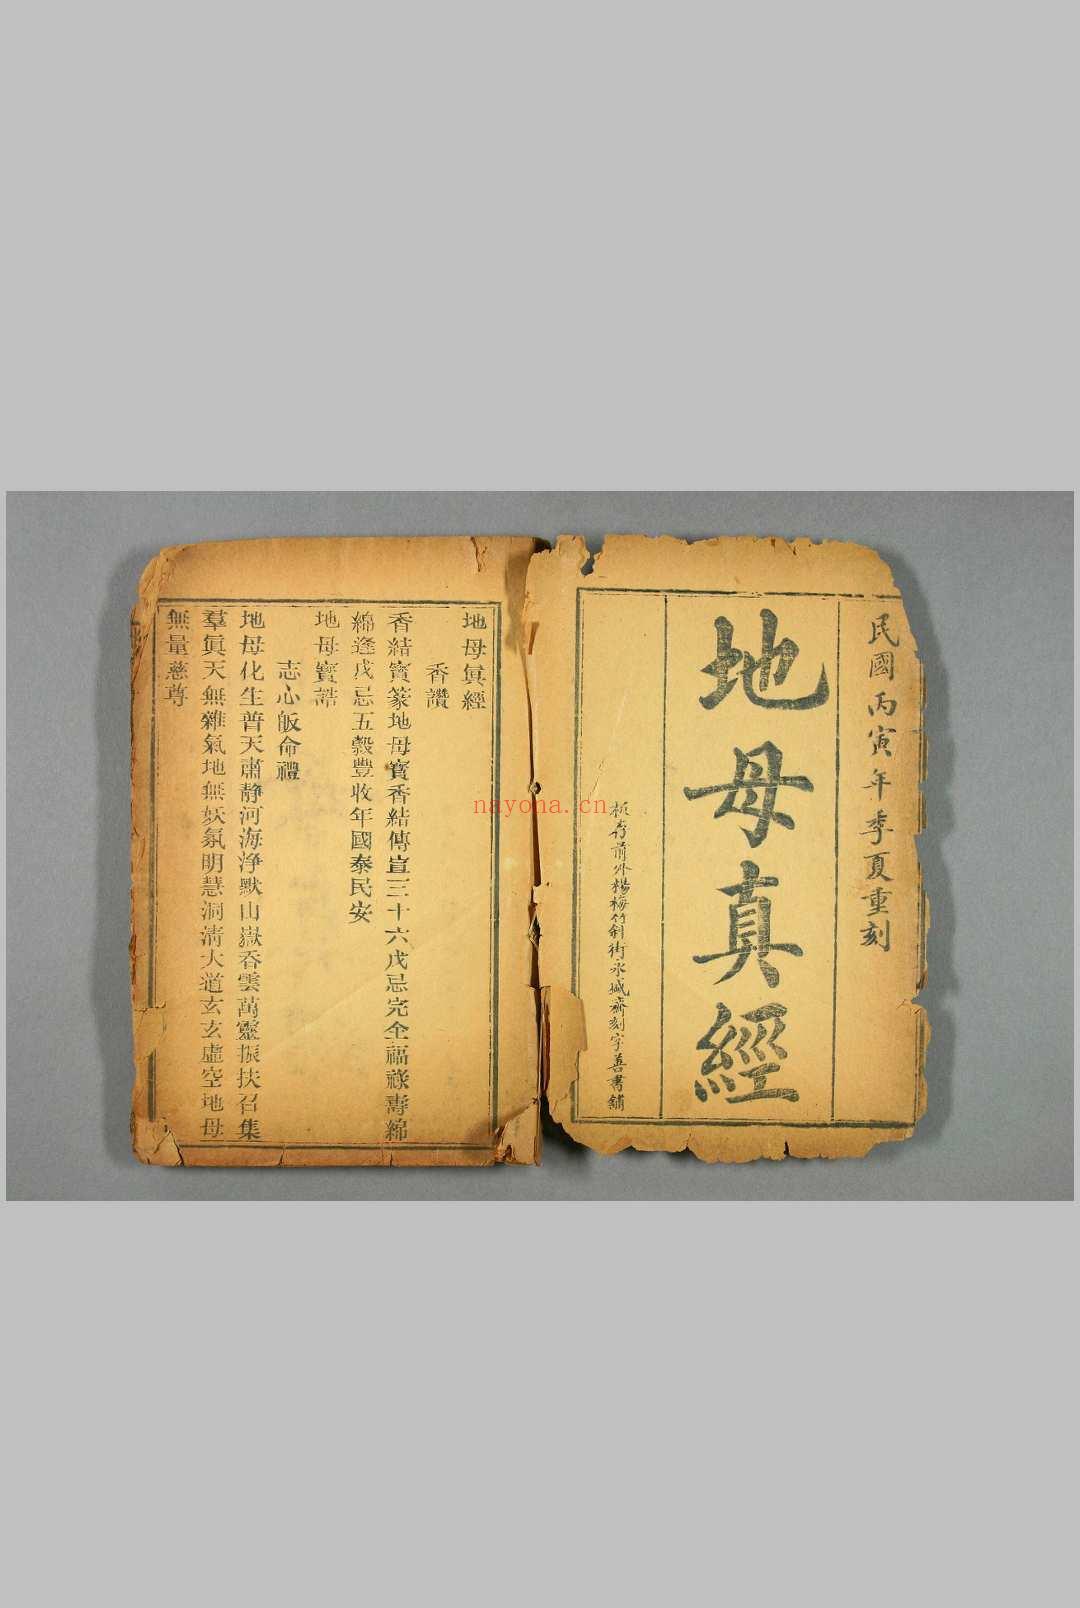 民國丙寅年季夏重刻
地母真經
板存前外楊梅竹斜街永盛齋刻字善書鋪
地母眞經
香讚
香結寳篆地母寳香結傳宣三十六戊忌完全福祿壽綿
綿逢戊忌五穀豐收年國泰民安
地母寳誥
志心皈命禮
地母化生普天肅静河海浄默山嶽吞雲萬靈振扶召集
羣眞天無雜氣地無妖氛明慧洞清大道玄玄虛空地母
無量慈尊
nayona.cn